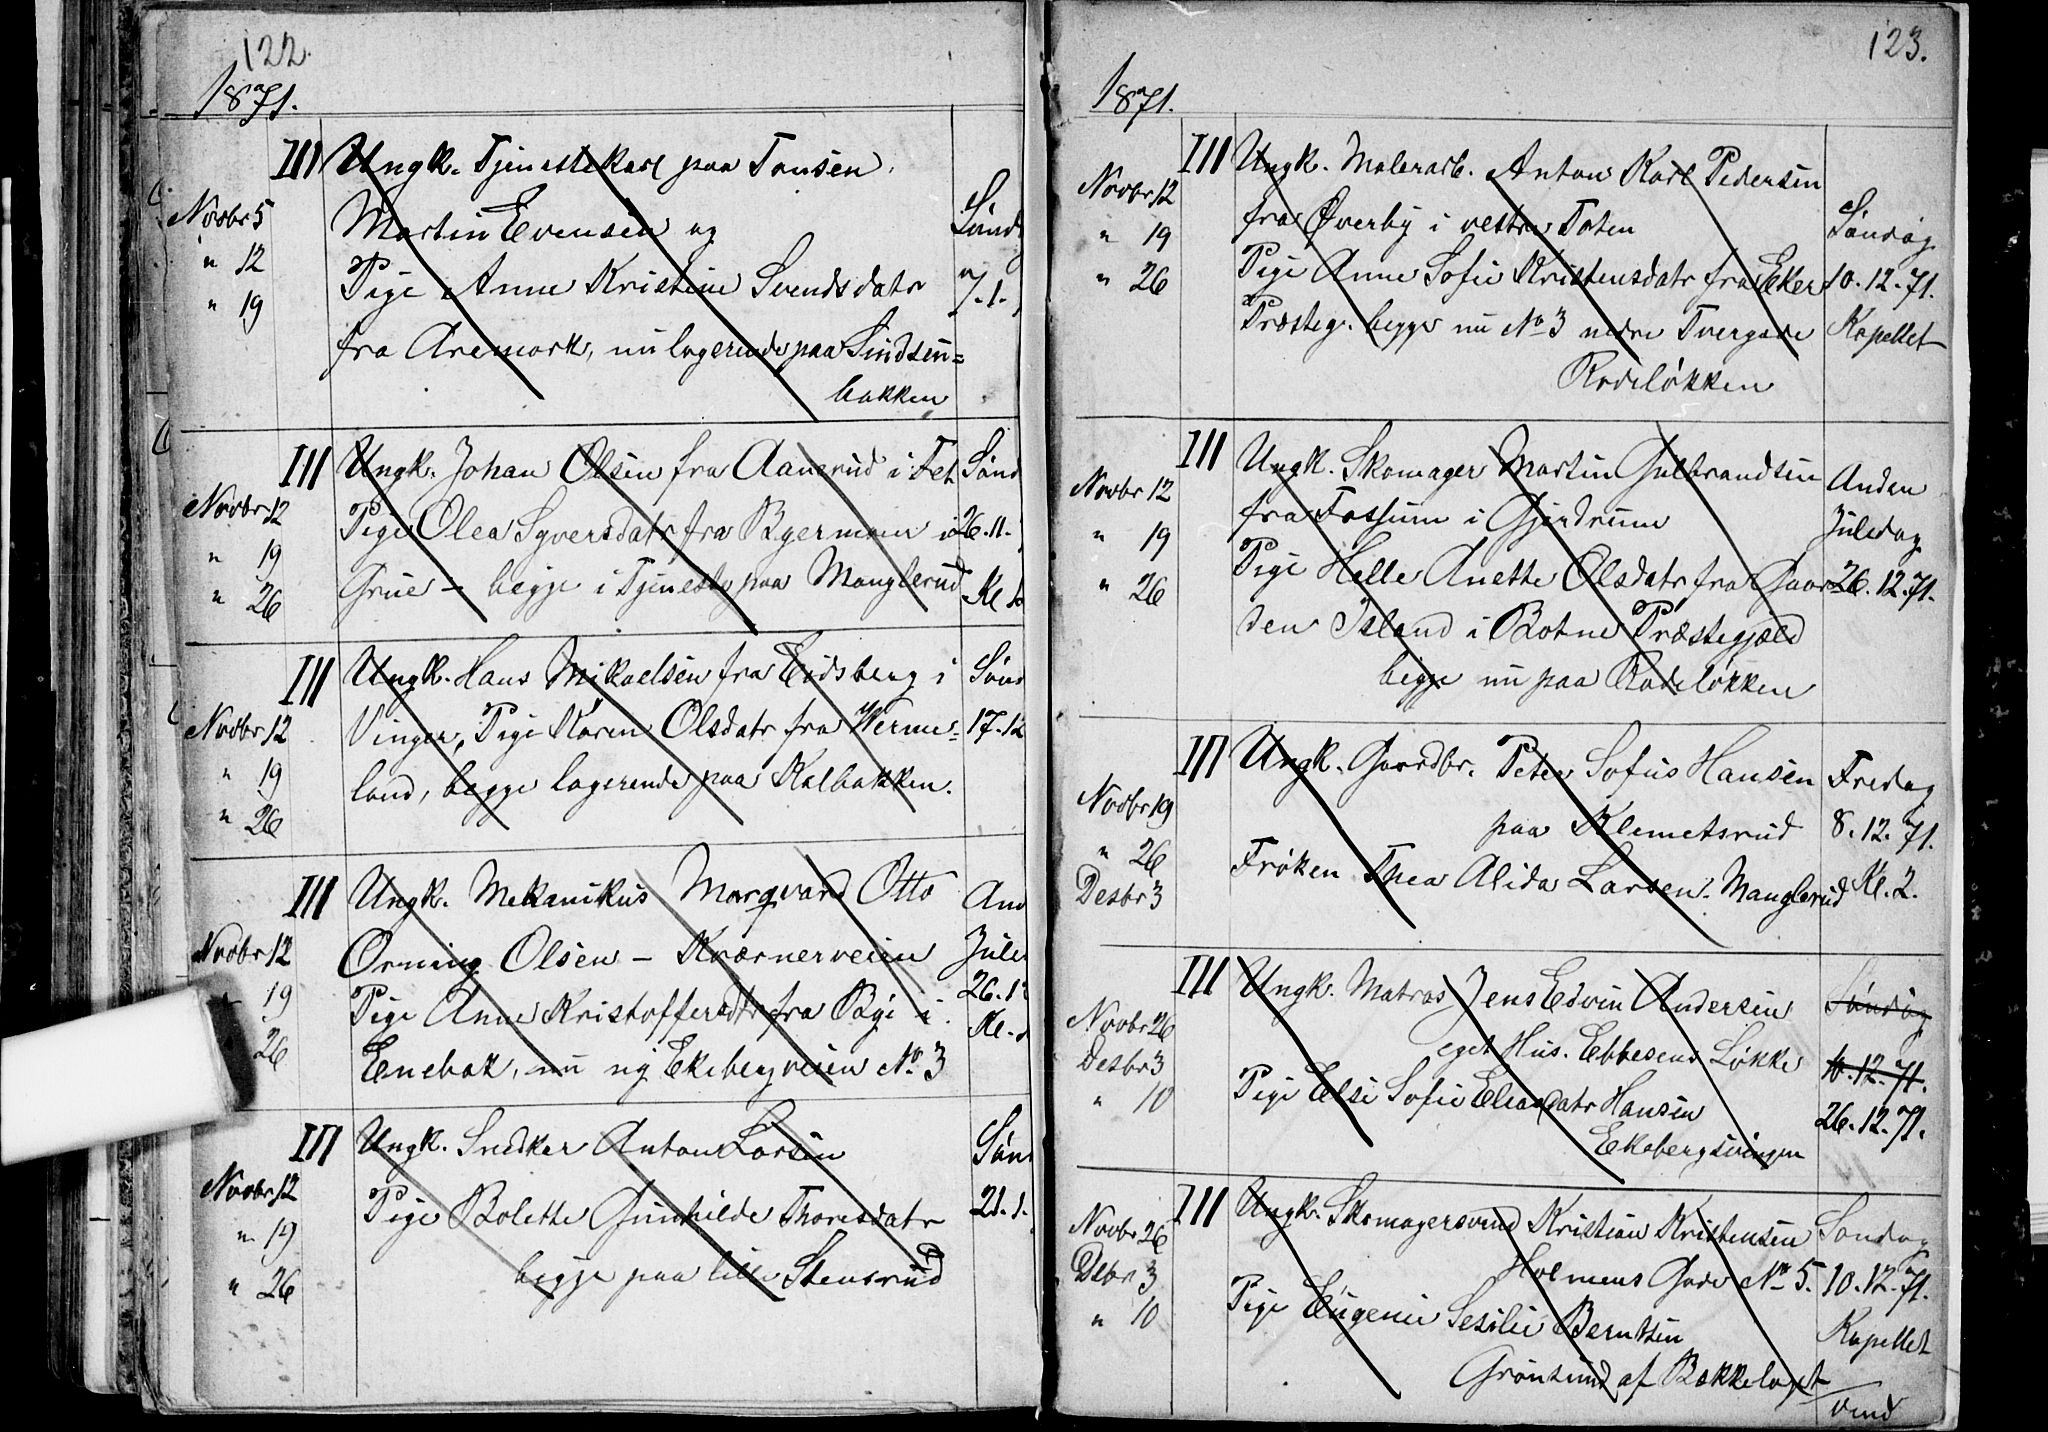 122.
1871.
III Ungk. Tjenestekarl paa Tonsen
Novbr 5
" 12
" 19
Martin Evensen og
Pige Anne Kristine Svendsdatr
fra Aremark, nu logerende paa Sindsen=
bakken
Sönd
7.1.
III Ungk. Johan Olsen fra Aanerud i Fet
Novbr 12
" 19
" 26
Pige Olea Syversdatr fra Byermoen i
Grue – begge i Tjeneste paa Manglerud
Sönd
26.11.
Kl
III Ungk. Hans Mikaelsen fra Eidsberg i
Novbr 12
" 19
" 26
Vinger, Pige Karen Olsdatr fra Werme=
land, begge logerende paa Kalbakken.
Sönd
17.12
III Ungk. Mekanikus Marqvard Otto
Novbr 12
19
26
Orning Olsen – Kværnerveien
Pige Anne Kristoffersdtr fra Bÿi i
Enebak, nu ny Ekebergveien No 3
And
Jule
26.12
Kl.
III Ungk. Snedker Anton Larsen
Novbr 12
" 19
" 26
Pige Bolette Gunhilde Thoresdatr
begge paa lille Stensrud
Sön
21.1.
123.
1871.
III Ungk. Malerarb. Anton Karl Pedersen
Novbr 12
" 19
" 26
fra Øverby i vestre Toten
Pige Anne Sofie Kristensdatr fra Eker
Præsteg. begge nu No 3 nedre Tvergade
Rodeløkken
Söndag
10.12.71.
Kapellet
III Ungk. Skomager Martin Gulbrandsen
Novbr 12
" 19
" 26
fra Fossum i Gjerdrum
Pige Helle Anette Olsdatr fra Gaar
den Island i Botne Præstegjæld
begge nu paa Rodeløkken
Anden
Juledag
26.12.71.
III Ungk. Gaardbr. Peter Sofus Hansen
Novbr 19
" 26
Desbr 3
paa Klemetsrud
Frøken Thea Alida Larsen. Manglerud
Fredag
8.12.71.
Kl. 2.
III Ungk. Matros Jens Edvin Andersen
Novbr 26
Desbr 3
" 10
eget Hus. Ebbesens Løkke
Pige Else Sofie Hansen
Ekebergsvingen
Söndag
10.12.71.
26.12.71.
III Ungk. Skomagersvend Kristian Kristensen
Novbr 26
Debr 3
" 10
Holmens Gade No 5.
Pige Eugenie Sesilie Berntsen
Grönsund af Bækkelaget
Söndag
10.12.71.
Kapellet
vend